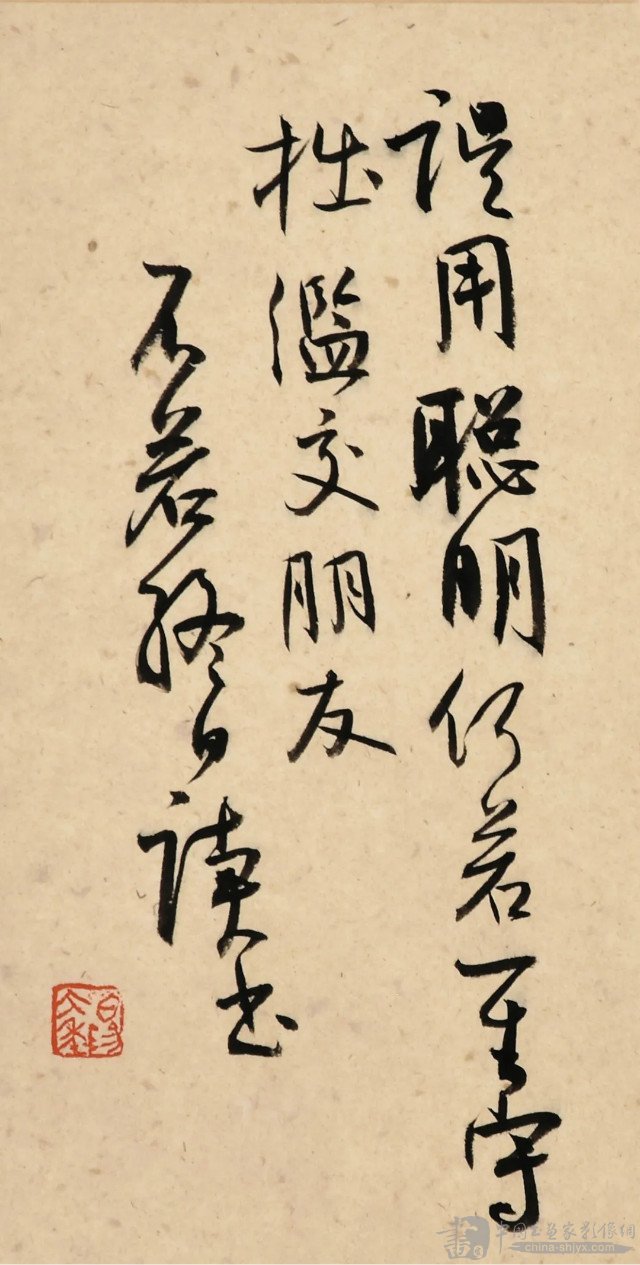 误用聪明何若一生守
拙滥交朋友
不若终日读书
中国书画家影像网
china-shjyx.com